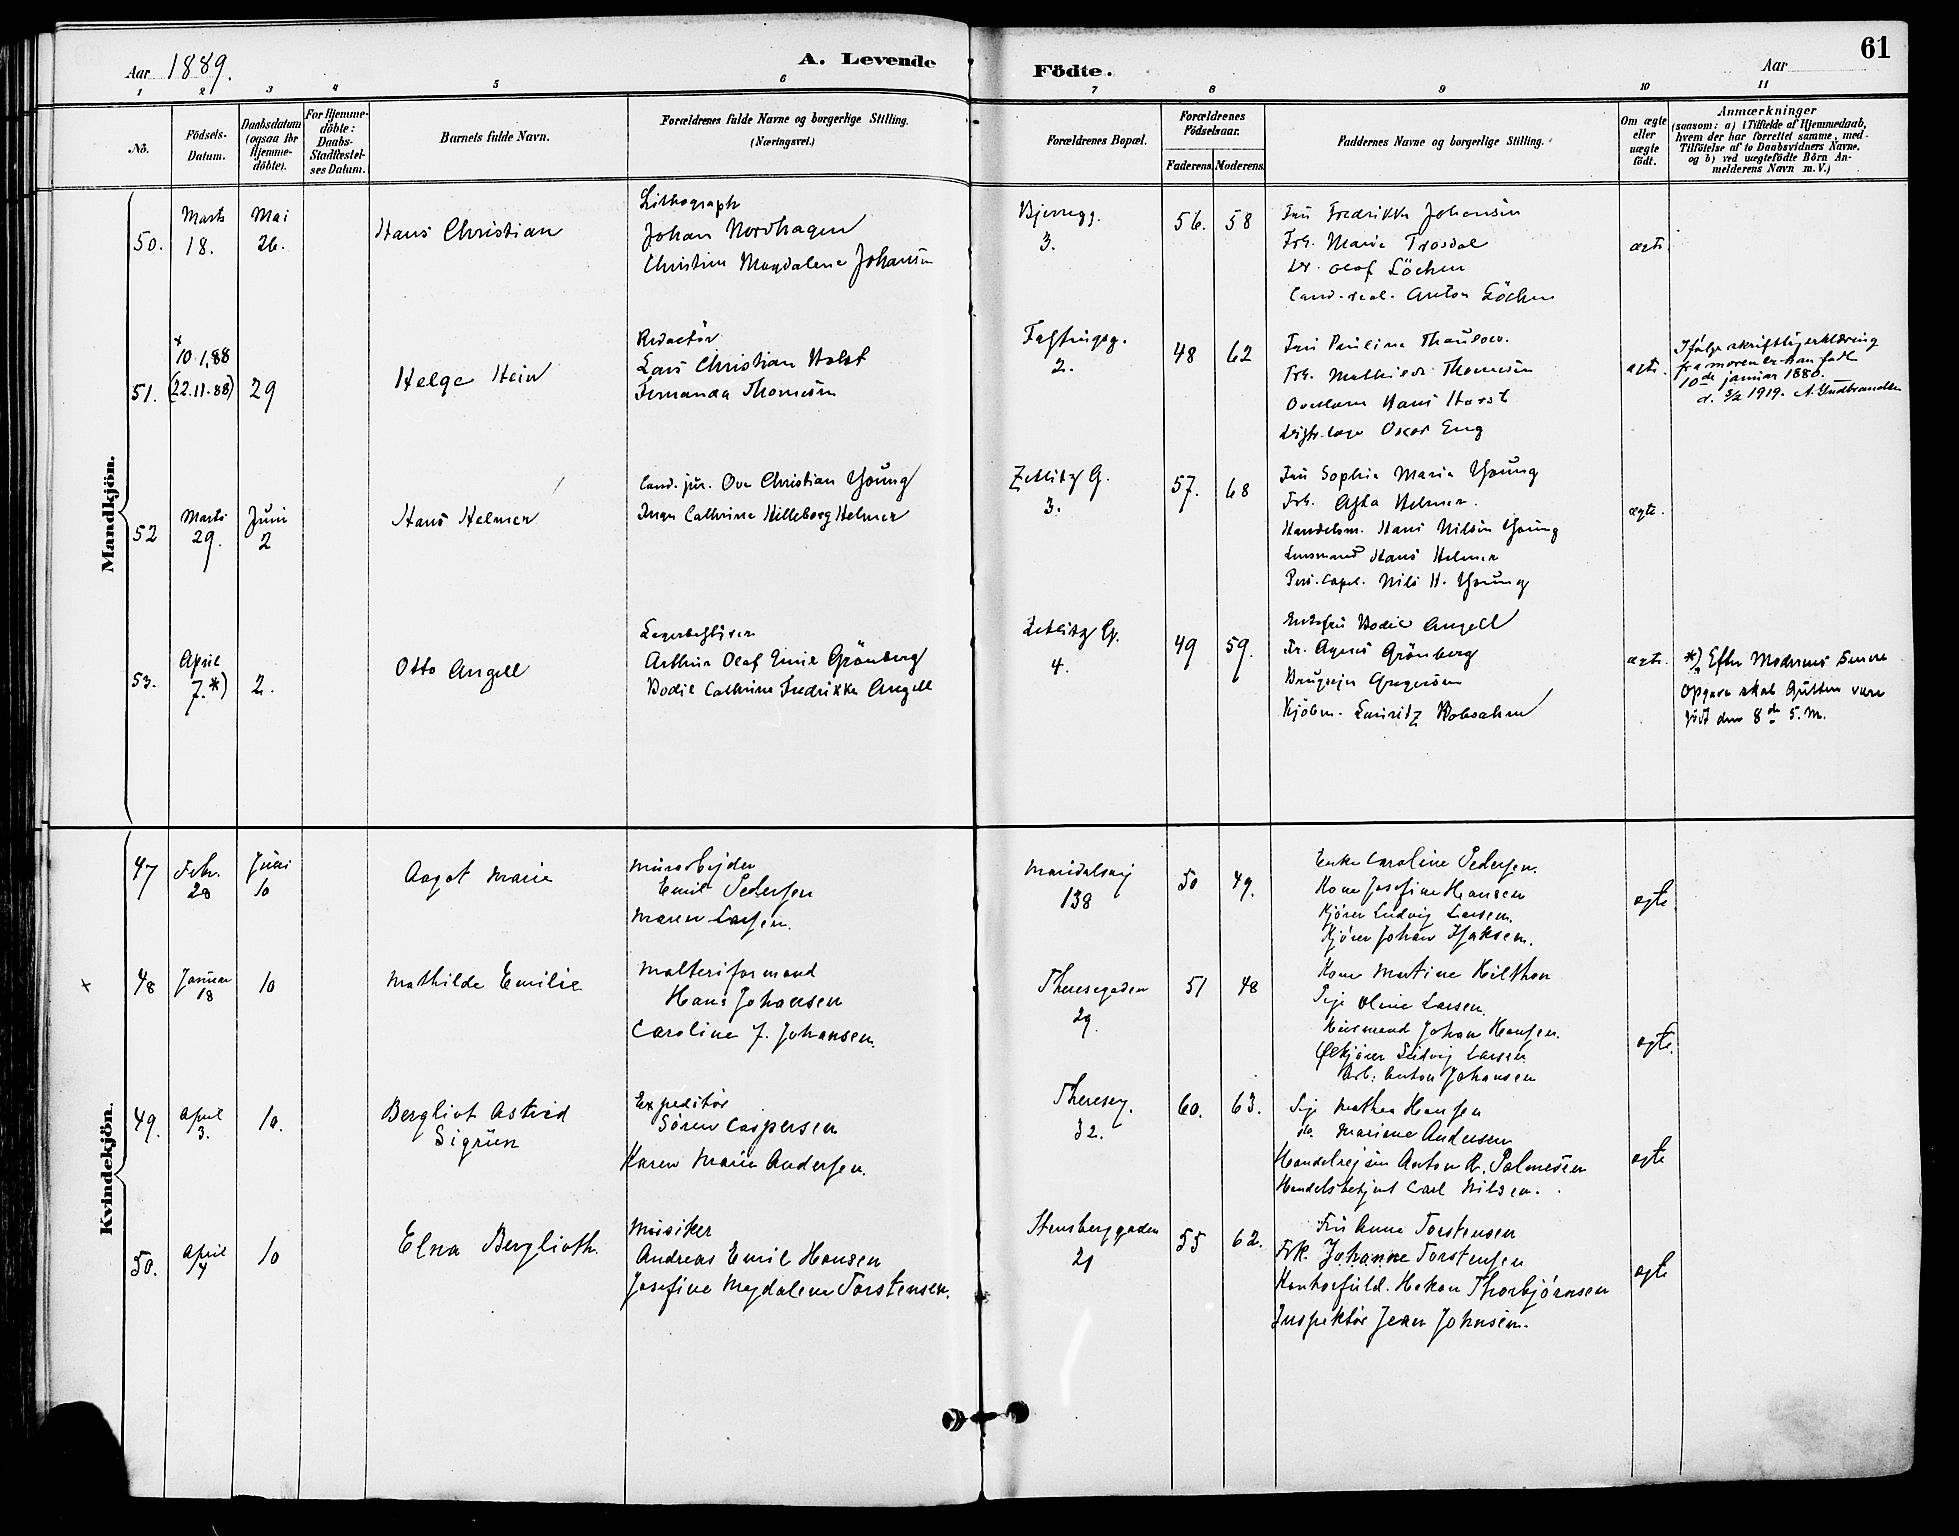 61
Aar 1889.
A. Levende Födte.
Aar
1 2 3 4 5 6 7 8 9 10 11
No.
Födsels-Datum.
Daabsdatum (ogsaa for Hjemme-döbte).
For Hjemme-döbte: Daabs-Stadfæstelses Datum.
Barnets fulde Navn.
Forældrenes fulde Navne og borgerlige Stilling. (Næringsvei.)
Forældrenes Bopæl.
Forældrenes Födselsaar.
Faderens. Moderens.
Faddernes Navne og borgerlige Stilling.
Om ægte eller uægte födt.
Anmærkninger
(saasom: a) i Tilfælde af Hjemmedaab, hvem der har forrettet samme, med Tilföielse af to Daabsvidners Navne, og b) ved uægtefödte Börn Anmelderens Navn m.V.)
Mandkjön.
50.
Marts 18.
Mai 26.
Hans Christian
Lithograph
Johan Nordhagen
Christine Magdalene Johansen
Bjerregg. 3.
56. 58
Fru Fredrikke Johansen
Frk. Marie Trosdal
Dr. Olaf Löchen
Cand. real. Anton Löchen
ægte
51.
10.1.88
(22.11.88)
29
Helge Hein
Redactör
Lars Christian Holst
Fernanda Thomesen
Faltingsg. 2.
48 62
Fru Pauline Thaulow.
Frk. Mathilde Thomesen
Overlærer Hans Horst
Oscar Eng
ægte.
Ifølge skriftlig erklæring
fra moren er han født
10de januar 1880.
d. 5/2 1919. A. Gudbrandsen
52
Marts 29.
Juni 2
Hans Helmer
Cand. jur. Ove Christian Young
Inger Cathrine Hilleborg Helmer
Zetlitz G. 3.
57. 68
Fru Sophie Marie Young
Frk. Asta Helmer.
Handelsm. Hans Nilsen Young
Lensmand Hans Helmer
Pers. Capel. Nils H. Young
ægte.
53.
April 7.*)
2.
Otto Angell
Lagerbestyrer
Arthur Olaf Emil Grönberg
Bodil Cathrine Fredrikke Angell
Zetlitz G. 4.
49 59.
Enkefru Bodil Angell
Fr. Agnes Grönberg
Brugsejer Gregersen
Kjöbm. Lauritz Robsahm
ægte.
*) Efter Moderens senere
Opgave skal Gutten være
född den 8de s. M.
Kvindekjön.
47
Febr. 28
Juni 10
Aagot Marie
Murarbejder
Emil Pedersen
Maren Larsen.
Maridalsvej 138
50 49.
Enke Caroline Pedersen.
Kone Josefine Hansen
Kjører Ludvig Larsen.
Kjører Johan Isaksen.
ægte
48
Januar 18
10
Mathilde Emilie
Malteriformand
Hans Johansen
Caroline J. Johansen.
Theresegaden 29.
51 48
Kone Martine Hilthon
Pige Oline Larsen.
Husmand Johan Hansen.
Ølkjører Ludvig Larsen
Arb. Anton Johansen
ægte.
49.
April 3.
10.
Bergliot Astrid Sigrun
Expeditør
Søren Caspersen
Karen Marie Andersen.
Thereseg. 32.
60. 63.
Pige Mathea Hansen
do. Mariane Andersen
Handelsrejsen Anton R. Palmesen
Handelsbetjent Carl Nilsen.
ægte
50.
April 4
10
Elna Berglioth.
Musiker
Andreas Emil Hansen
Josefine Magdalene Torstensen.
Stensberggaden 21
55 62.
Fru Anna Torstensen
Frk. Johanne Torstensen
Kontorfuld. Hakon Thorbjørnsen
Inspektør Jean Johnsen.
ægte